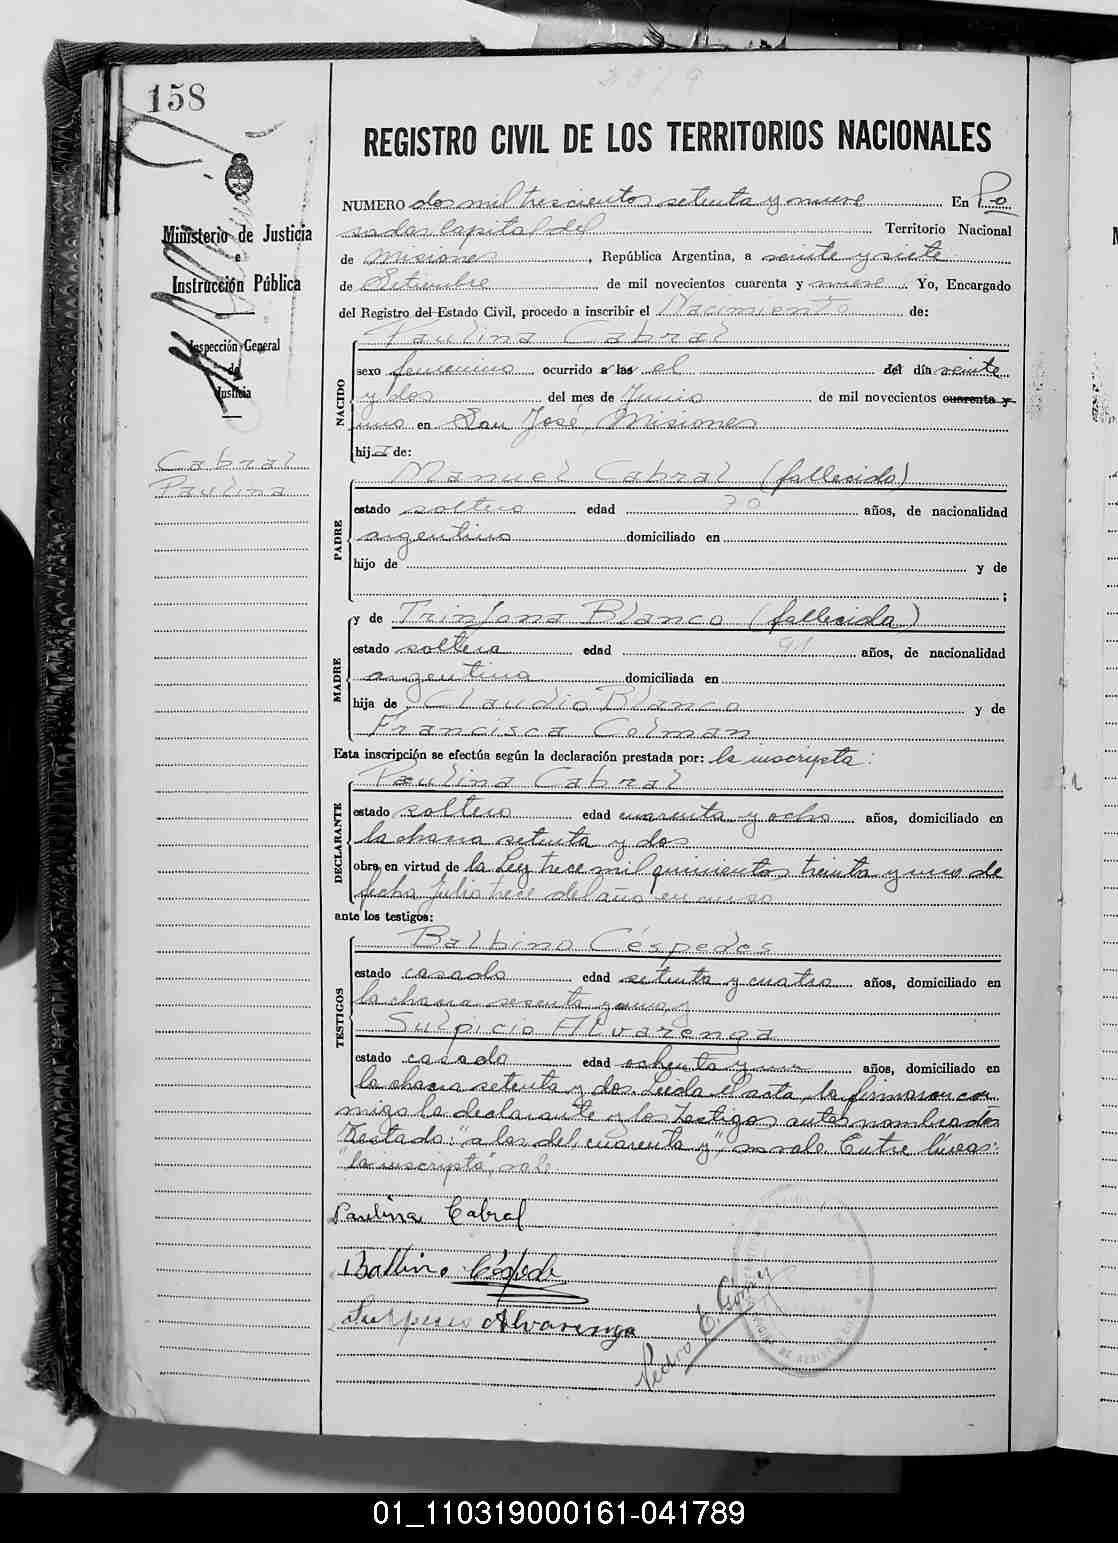 158
REGISTRO CIVIL DE LOS TERRITORIOS NACIONALES
Ministerio de Justicia
e
Instrucción Pública
Inspección General
de
Justicia
Cabral
Paulina
NUMERO dos mil trescientos setenta y nueve En Po
sadas Capital del Territorio Nacional
de Misiones, República Argentina, a veinte y siete
de Setiembre de mil novecientos cuarenta y nueve. Yo, Encargado
del Registro del Estado Civil, procedo a inscribir el Nacimiento de:
Paulina Cabral
NACIDO
sexo femenino ocurrido a las el del día veinte
y dos del mes de Junio de mil novecientos cuarenta y
uno en San José, Misiones
hija de:
Manuel Cabral (fallecido)
PADRE
estado soltero edad años, de nacionalidad
argentino domiciliado en
hijo de y de
;
y de Trinfona Blanco (fallecida)
MADRE
estado soltera edad años, de nacionalidad
argentina domiciliada en
hija de Claudio Blanco y de
Francisca Colman
Esta inscripción se efectúa según la declaración prestada por: la inscripta:
Paulina Cabral
DECLARANTE
estado soltera edad cuarenta y ocho años, domiciliado en
la chacra setenta y dos
obra en virtud de la Ley trece mil quinientos treinta y uno de
fecha Julio trece del año en curso
ante los testigos:
Balbino Céspedes
TESTIGOS
estado casado edad setenta y cuatro años, domiciliado en
la chacra sesenta y una, y
Sulpicio Alvarenga
estado casado edad ochenta y un años, domiciliado en
la chacra setenta y dos. Leida el acta, la firmaron con
migo la declarante y los testigos antes nombrados
Testado: "a las del, cuarenta y", no vale. Entre líneas:
"la inscripta", vale.
Paulina Cabral
Balbino Céspede
Alvarenga
Pedro E. Gómez
01_110319000161-041789